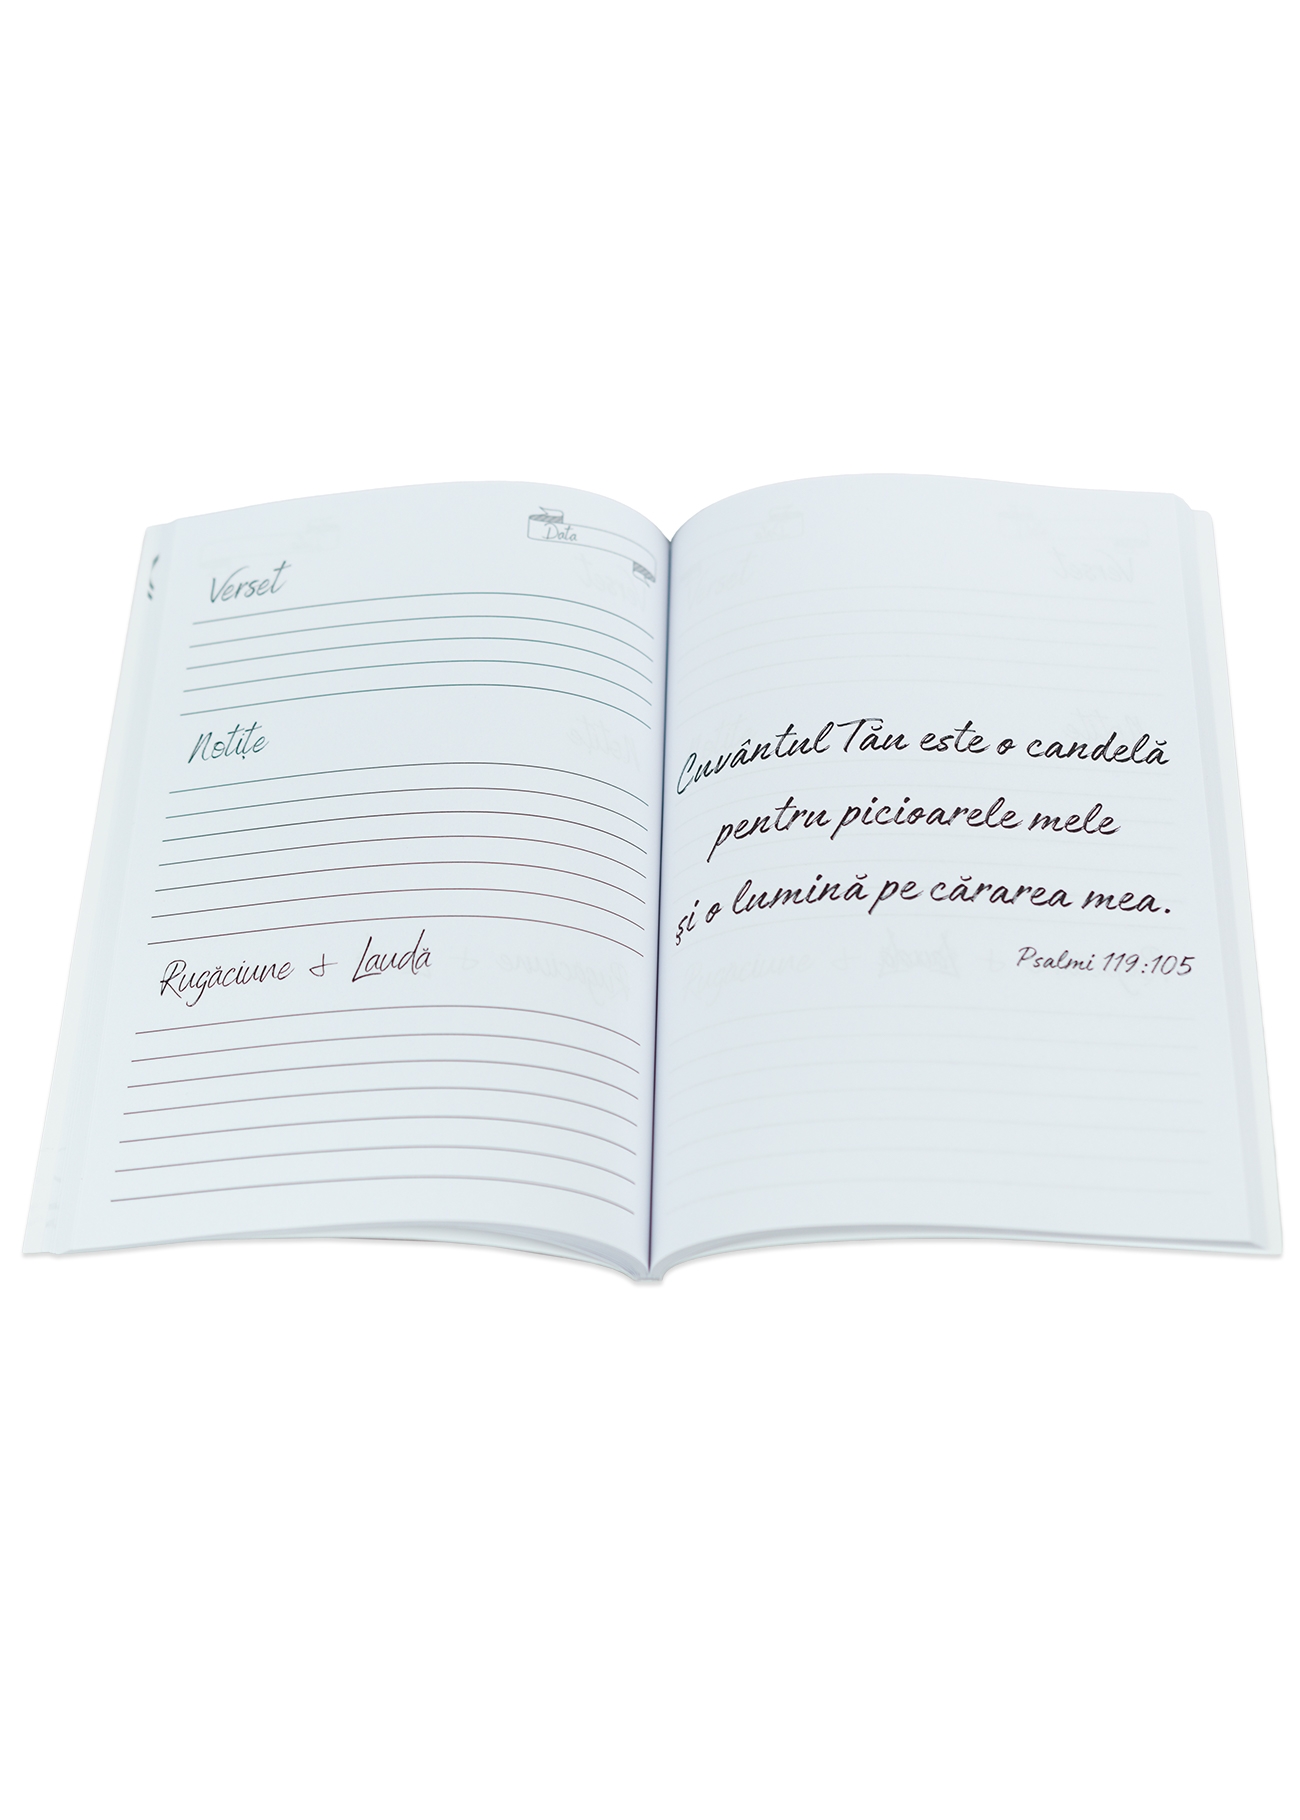 Data
Verset
Notițe
Rugăciune + Laudă
Cuvântul Tău este o candelă
pentru picioarele mele
și o lumină pe cărarea mea.
Psalmi 119:105